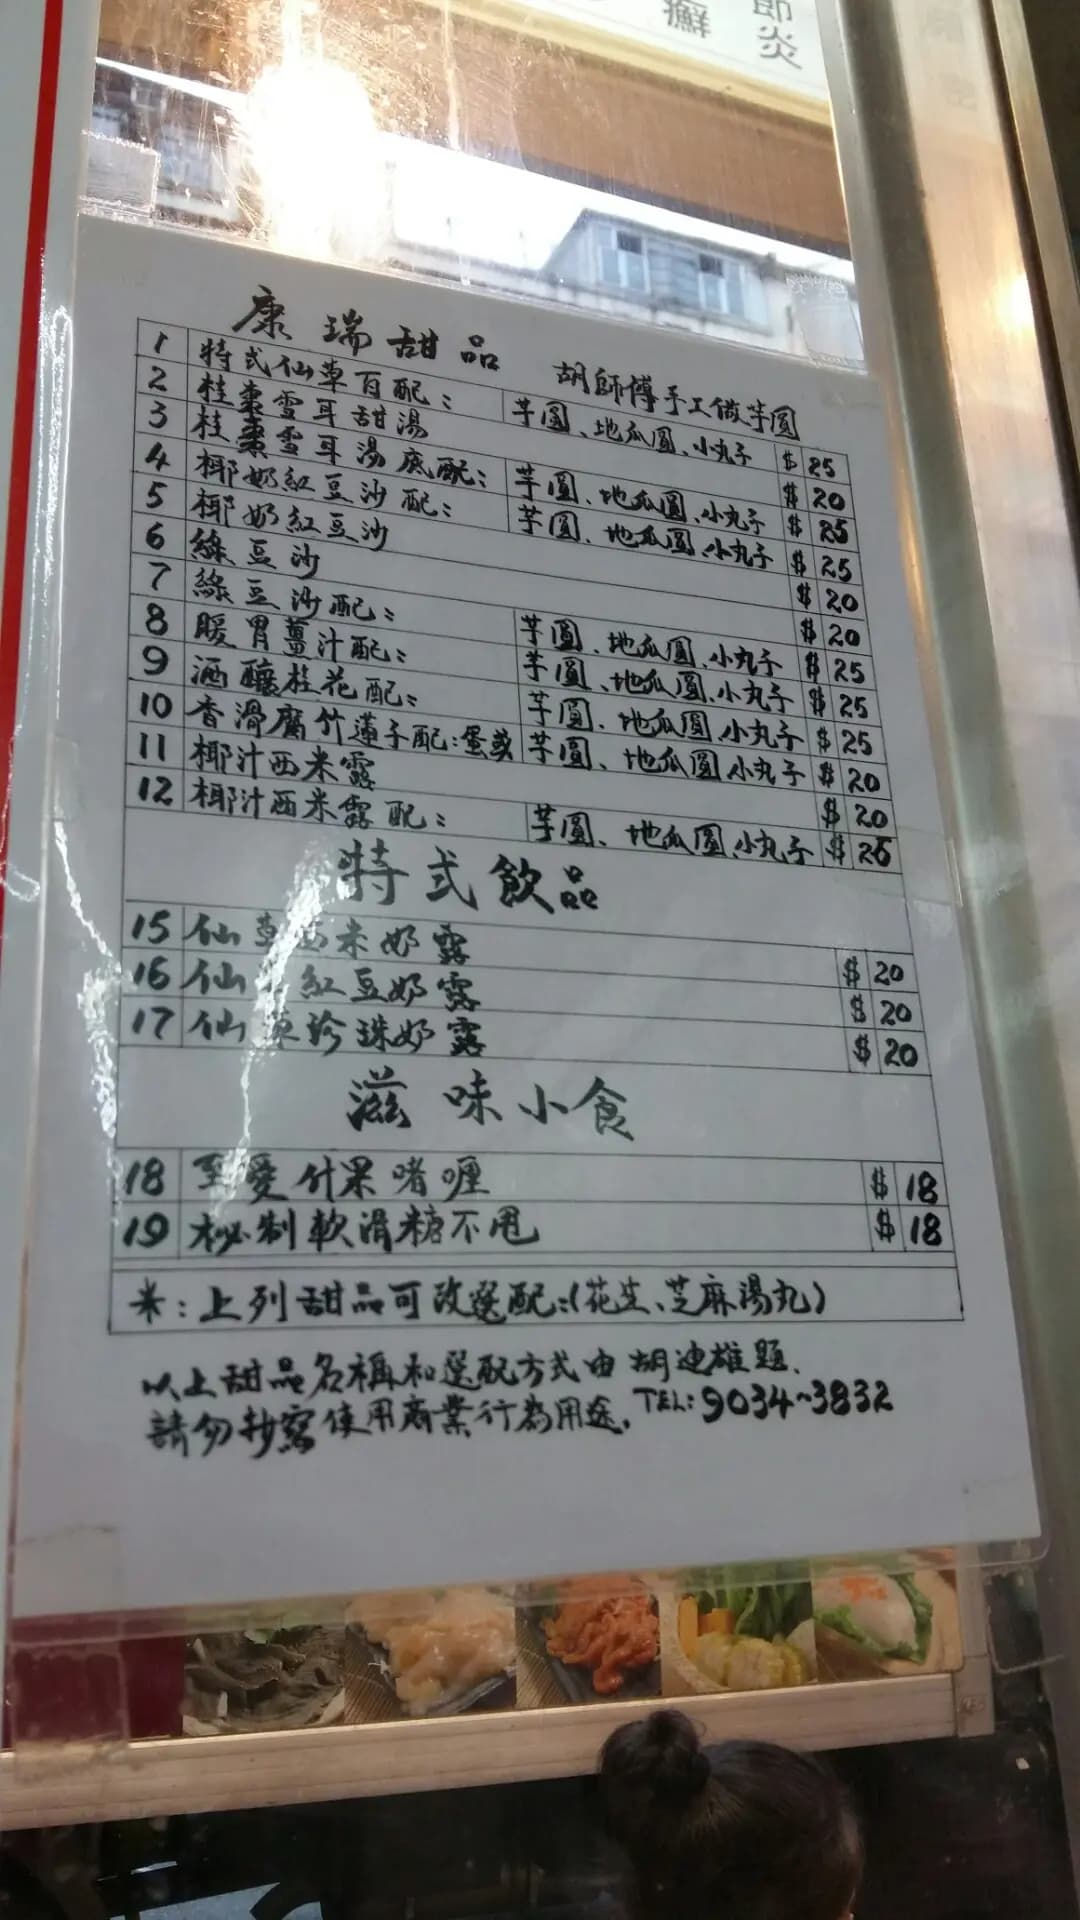 節炎
癬
康瑞甜品 胡師傅手工做芋圓
1 特式仙草百配： 芋圓、地瓜圓、小丸子 $ 25
2 桂棗雪耳甜湯 $ 20
3 桂棗雪耳湯底配： 芋圓、地瓜圓、小丸子 $ 25
4 椰奶紅豆沙配： 芋圓、地瓜圓、小丸子 $ 25
5 椰奶紅豆沙 $ 20
6 綠豆沙 $ 20
7 綠豆沙配： 芋圓、地瓜圓、小丸子 $ 25
8 暖胃薑汁配： 芋圓、地瓜圓、小丸子 $ 25
9 酒釀桂花配： 芋圓、地瓜圓、小丸子 $ 25
10 香滑腐竹蓮子配：蛋或 芋圓、地瓜圓、小丸子 $ 20
11 椰汁西米露 $ 20
12 椰汁西米露配： 芋圓、地瓜圓、小丸子 $ 25
特式飲品
15 仙草西米奶露 $ 20
16 仙草紅豆奶露 $ 20
17 仙草珍珠奶露 $ 20
滋味小食
18 至愛什果啫喱 $ 18
19 秘制軟滑糖不甩 $ 18
*：上列甜品可改選配：(花生、芝麻湯丸)
以上甜品名稱和選配方式由胡迪雄題.
請勿抄寫使用商業行為用途. TEL：9034~3832